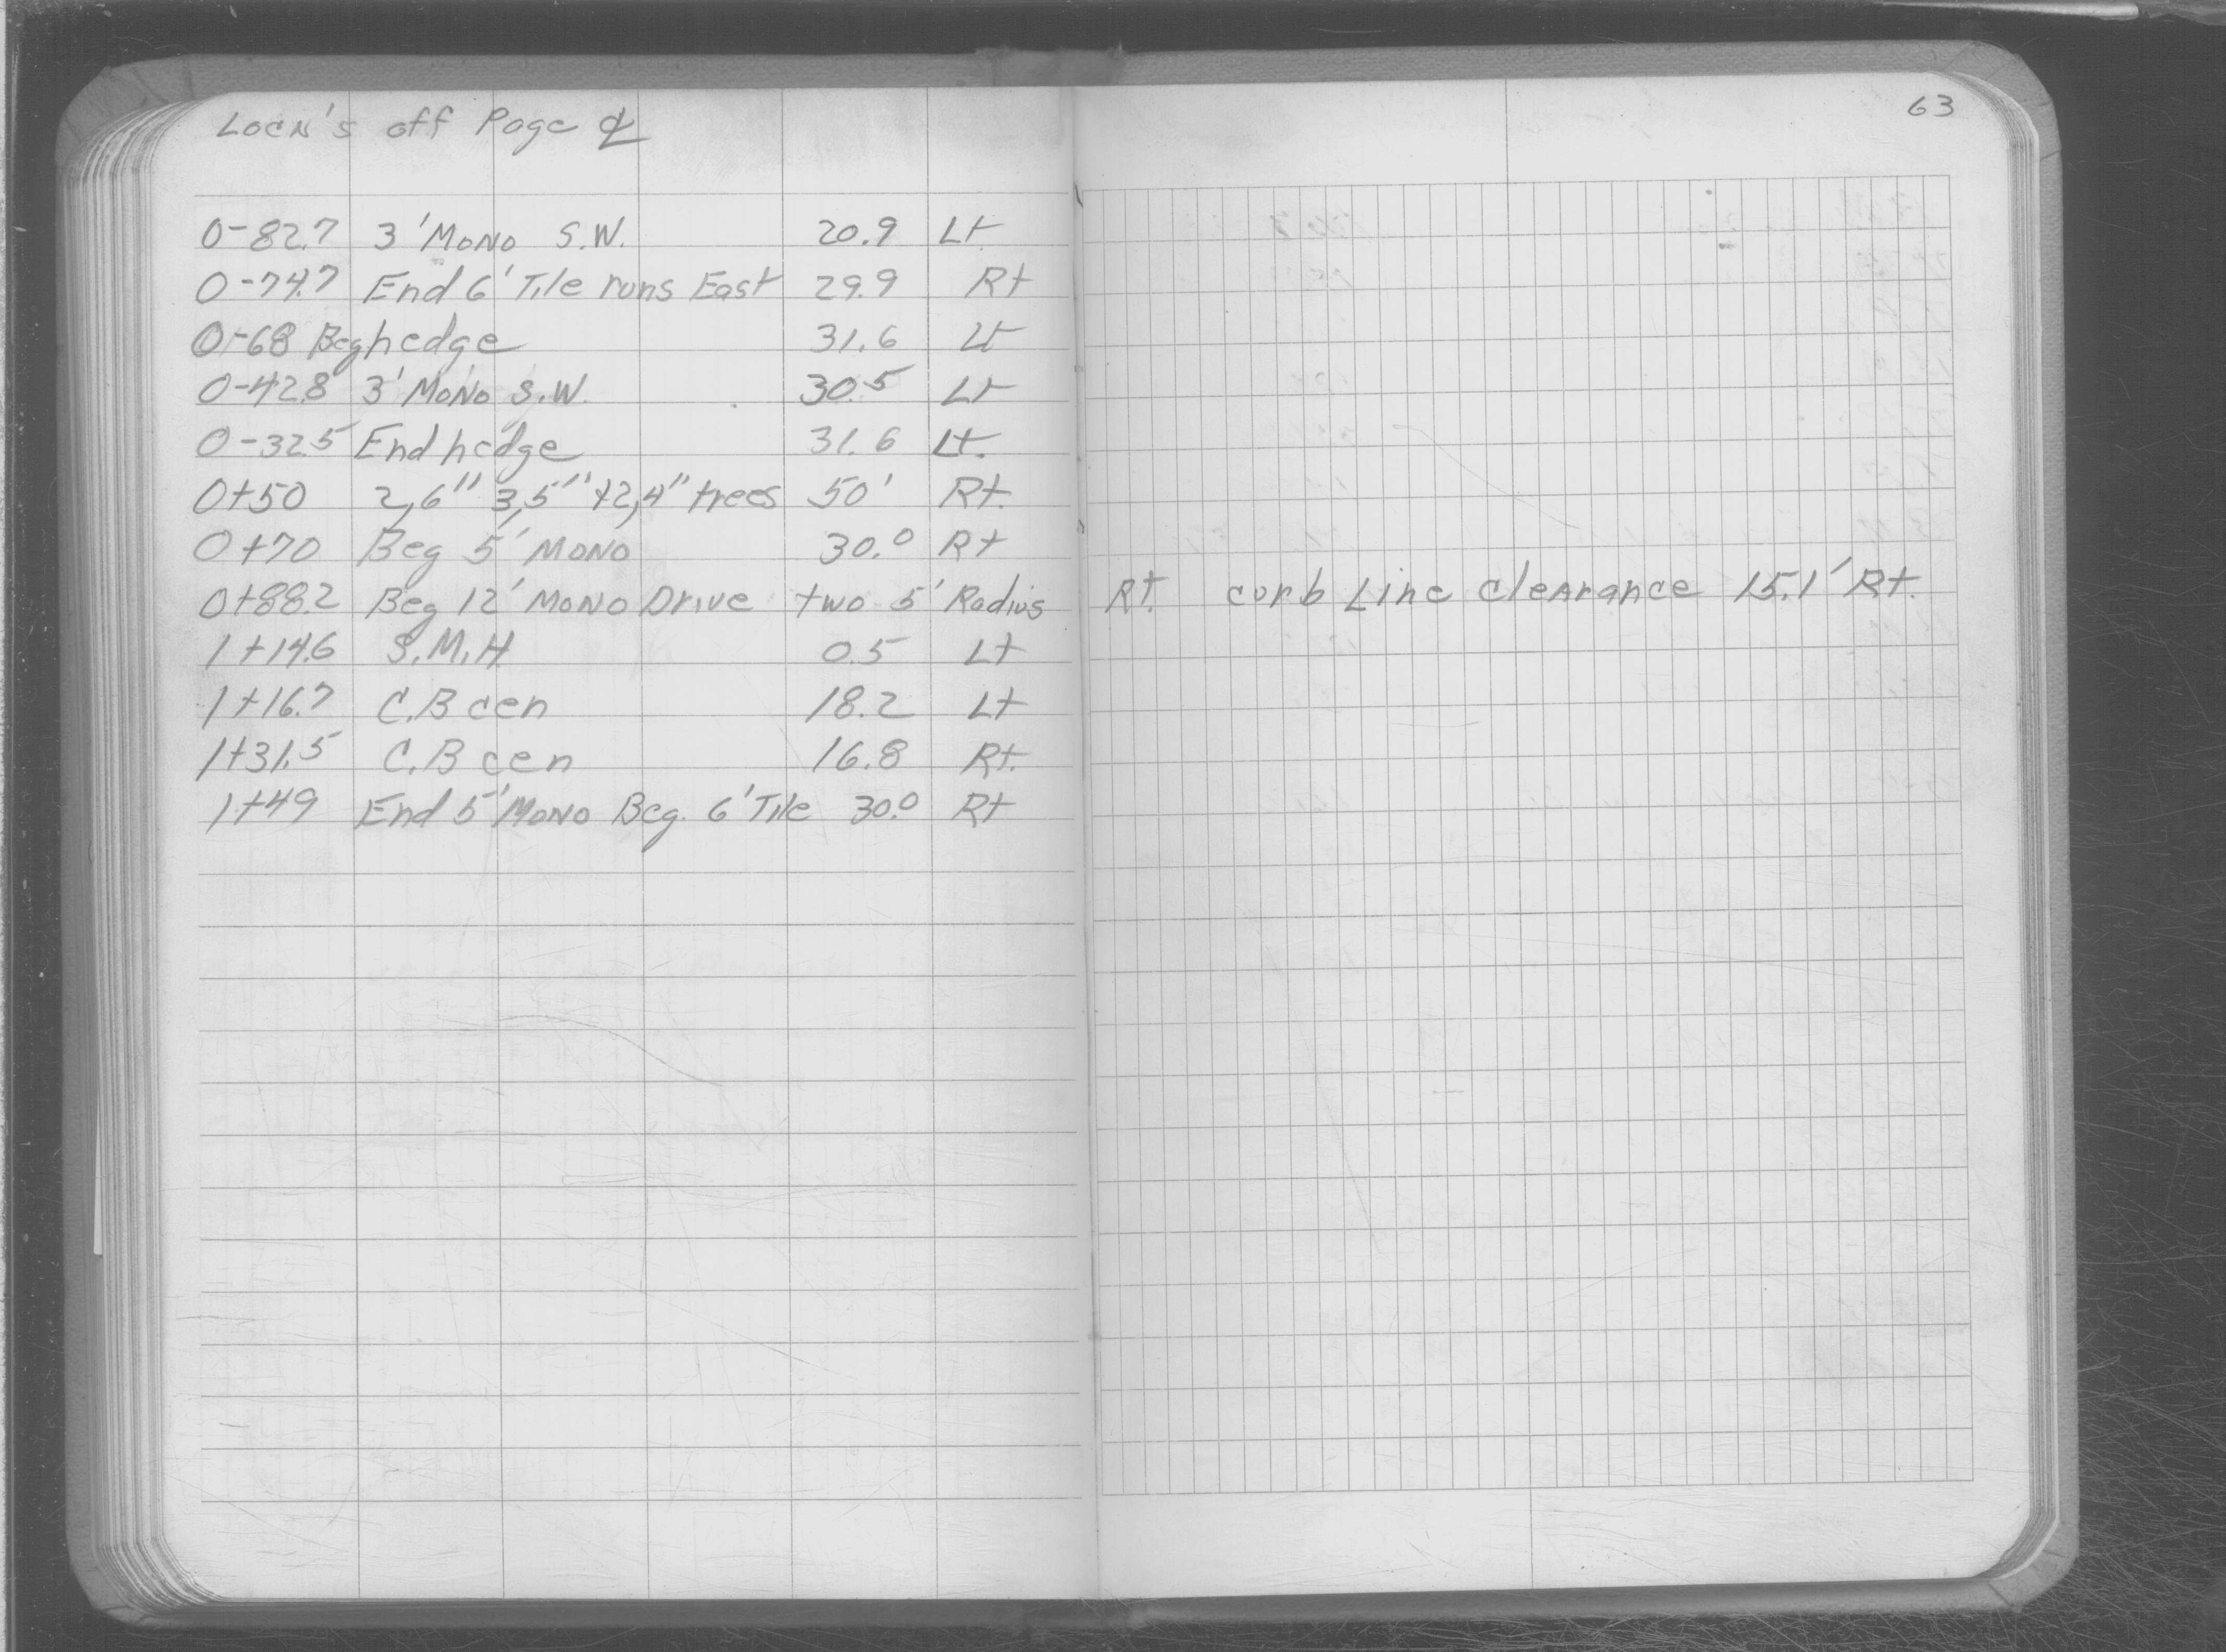 Locn's off Page ℄
63
0-82.7 3' Mono S.W. 20.9 Lt
0-74.7 End 6' Tile runs East 29.9 Rt
0-68 Beg hedge 31.6 Lt
0-42.8 3' Mono S.W. 30.5 Lt
0-32.5 End hedge 31.6 Lt.
0+50 2,6" 3,5" +2,4" trees 50' Rt.
0+70 Beg 5' Mono 30.0 Rt
0+88.2 Beg 12' Mono Drive two 5' Radius Rt. curb Line Clearance 15.1' Rt.
1+14.6 S.M.H 0.5 Lt
1+16.7 C.B cen 18.2 Lt
1+31.5 C.B cen 16.8 Rt.
1+49 End 5' Mono Beg. 6' Tile 30.0 Rt